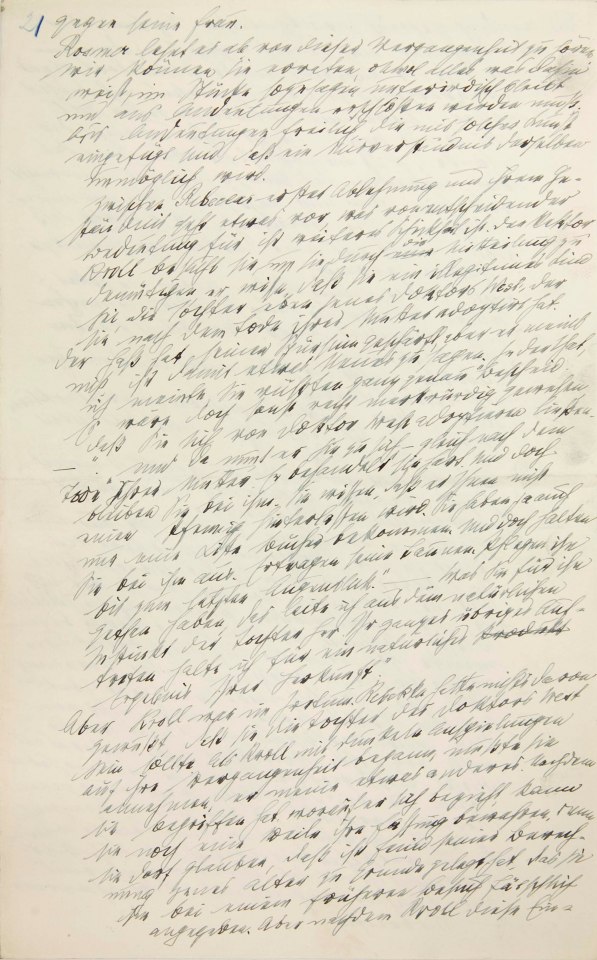 21
gegen seine Frau.
Rosmer lehnt es ab von dieser Vergangenheit zu hören
Wir können sie erraten, obwol alles was dahin
weist, im Stücke sozusagen unterirdisch bleibt
und aus Andeutungen erschlossen werden muß.
Aus Andeutungen freilich, die mit solcher Kunst
eingefügt sind, daß ein Misverständnis derselben
unmöglich wird.
Zwischen Rebekkas erster Ablehnung und ihrem Ge-
ständnis geht etwas vor, was von entscheidender
Bedeutung für ihr weiteres Schicksal ist. Der Rektor
Kroll besucht sie um sie durch die Mitteilung zu
demütigen, er wisse, daß sie ein illegitimes Kind
sei die Tochter eben jenes Doktors West, der
sie nach dem Tode ihrer Mutter adoptirt hat.
Der Haß hat seinen Spürsinn geschärft, aber er meint
nicht ihr damit etwas Neues zu sagen. „In der That,
ich meinte, Sie wüßten ganz genau Bescheid.
Es wäre doch sonst recht merkwürdig gewesen
daß Sie sich von Doktor West adoptieren ließen.
— „Und da nimmt er Sie zu sich gleich nach dem
Tode Ihrer Mutter. Er behandelt Sie hart. Und doch
bleiben Sie bei ihm. Sie wissen, daß er Ihnen nicht
einen Pfennig hinterlassen wird. Sie haben ja auch
nur eine Kiste Bücher bekommen. Und doch halten
Sie bei ihm aus. Ertragen seine Launen. Pflegen ihn
bis zum letzten Augenblick." — „Was Sie für ihn
gethan haben, das leite ich aus dem natürlichen
Instinkt der Tochter her. Ihr ganzes übriges Auf-
treten halte ich für ein natürliches Produkt
Ergebnis Ihrer Herkunft."
Aber Kroll war im Irrtum. Rebekka hatte nichts davon
gewußt daß sie die Tochter des Doktors West
sein sollte. Als Kroll mit dunkeln Anspielungen
auf ihre Vergangenheit begann, mußte sie
annehmen, er meine etwas anderes. Nachdem
sie begriffen hat, worauf er sich bezieht, kann
sie noch eine Weile ihre Fassung bewahren, denn
sie darf glauben, daß ihr Feind seiner Berech-
nung jenes Alter zu Grunde gelegt hat, das sie
ihm bei einem früheren Besuch fälschlich
angegeben. Aber nachdem Kroll diese Ein-